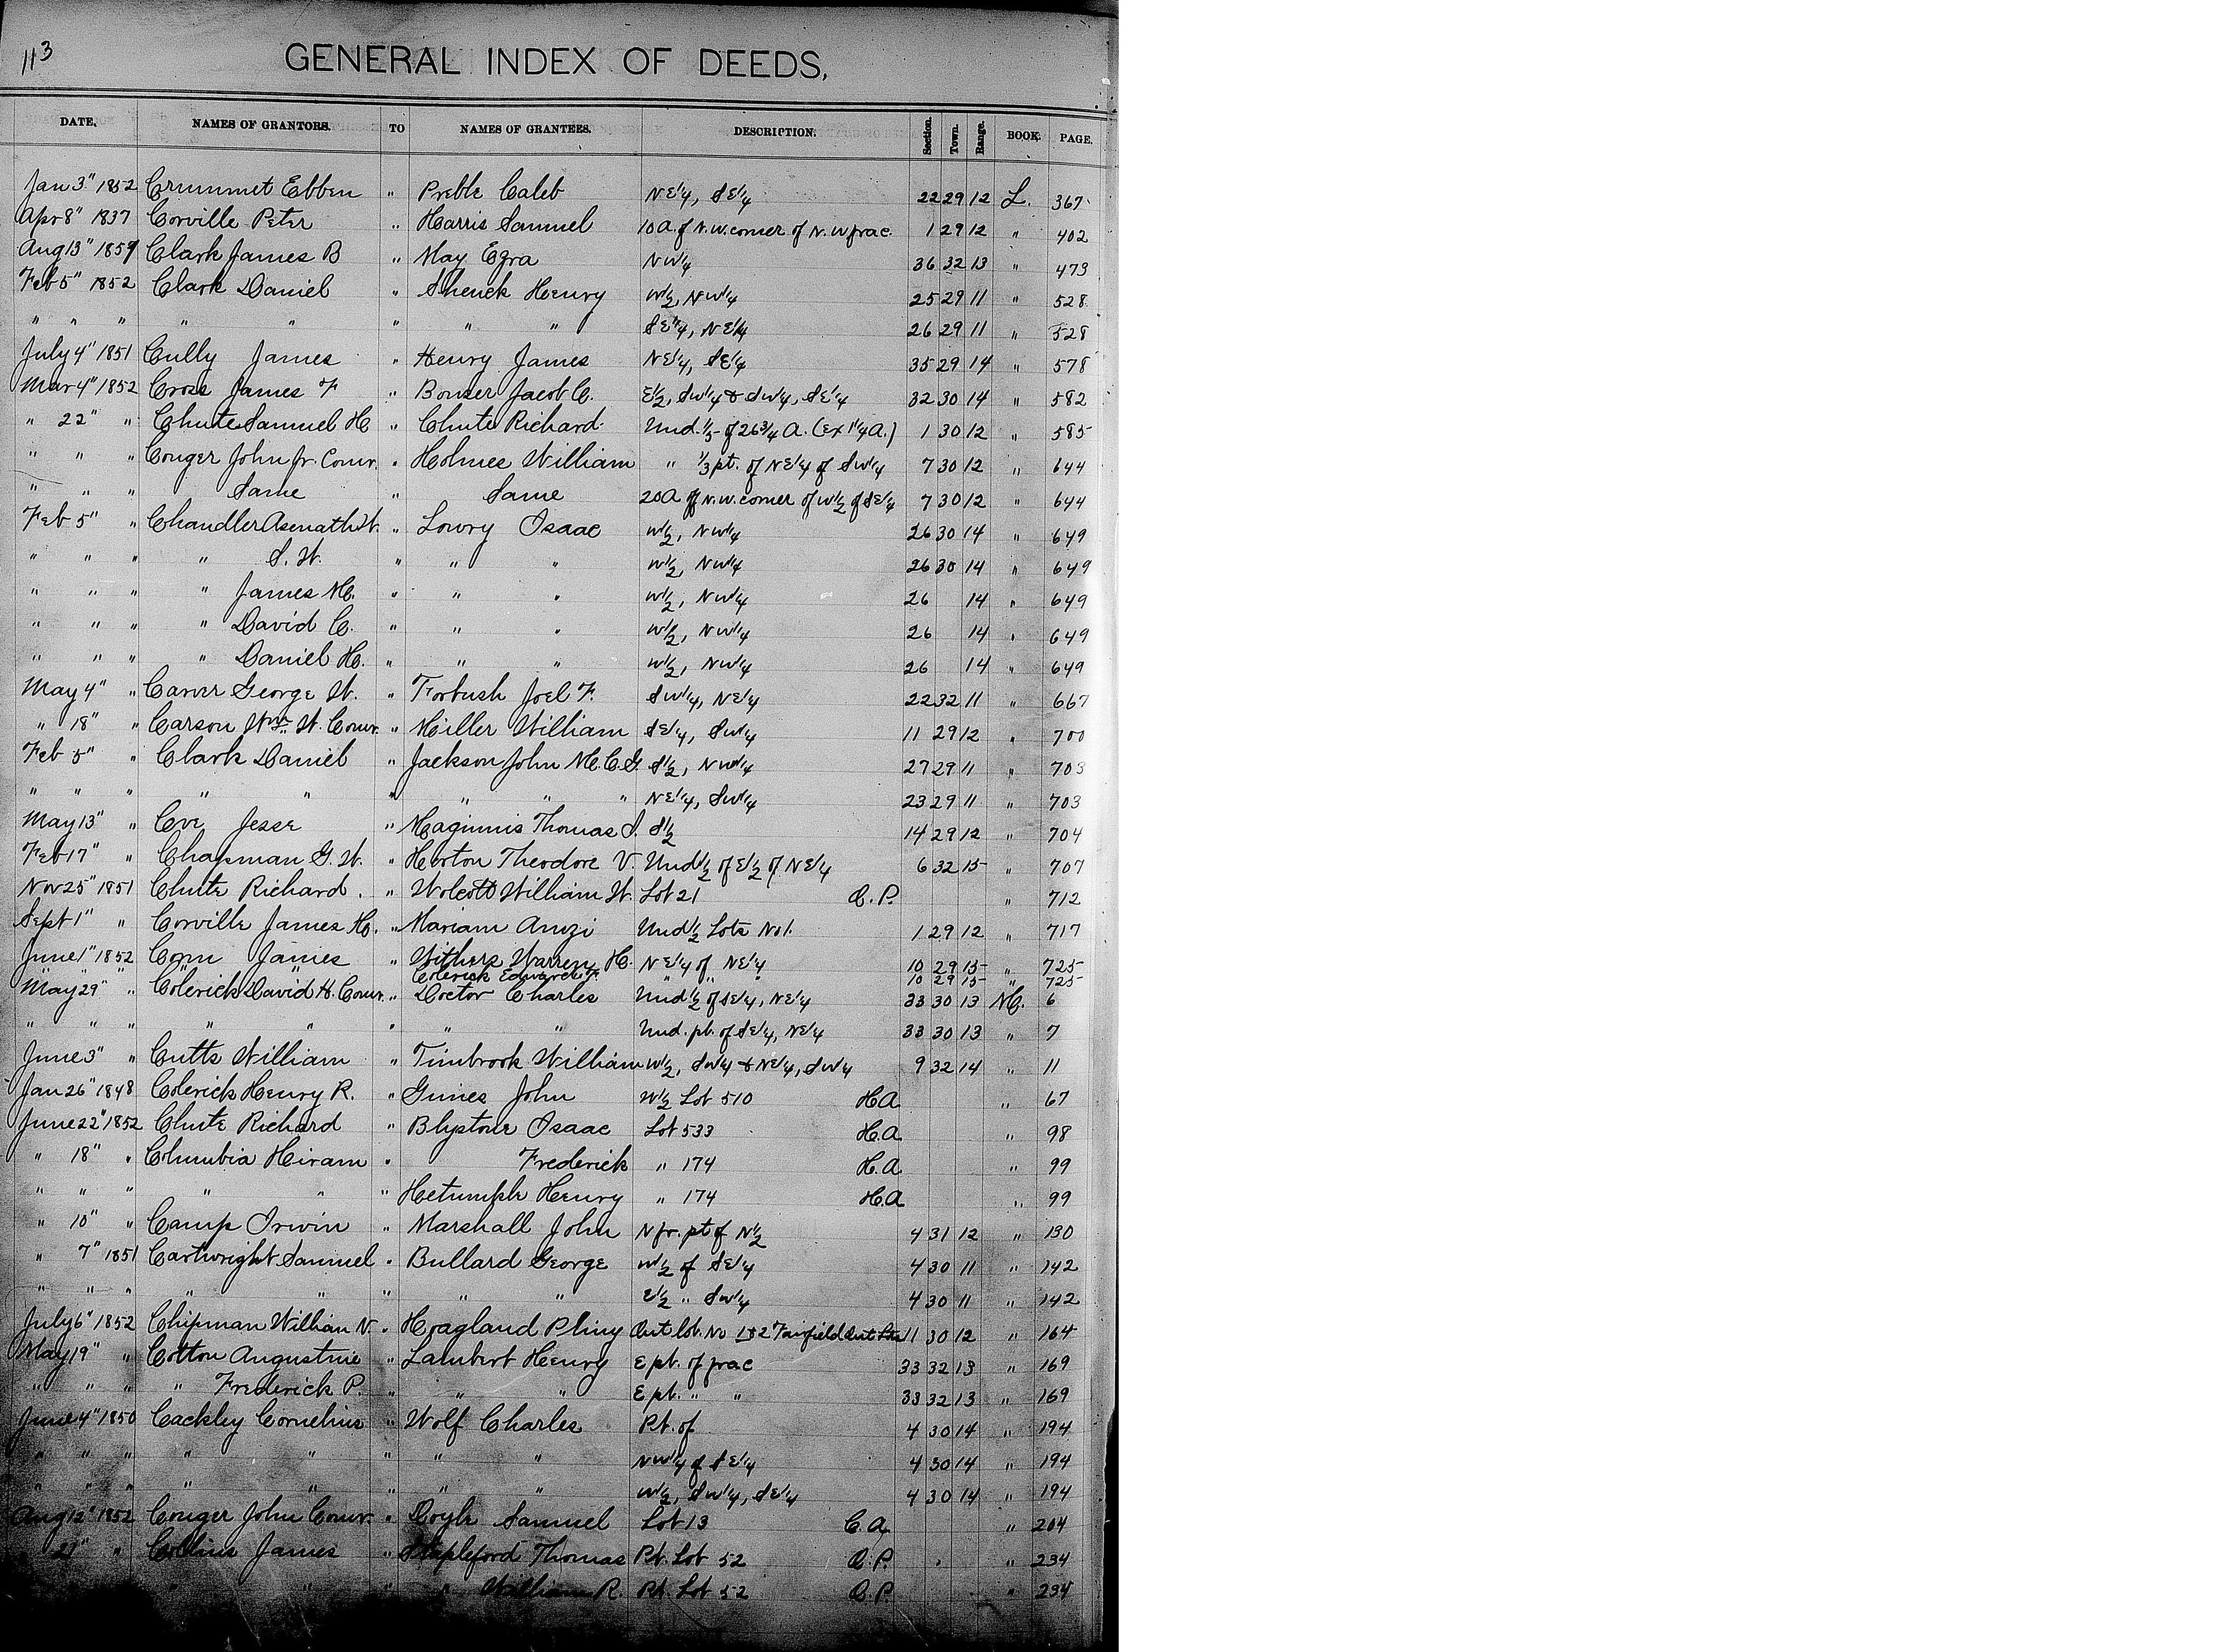 113
GENERAL INDEX OF DEEDS,
DATE, NAMES OF GRANTORS. TO NAMES OF GRANTEES. DESCRIPTION. Section. Town. Range. BOOK. PAGE.
Jan 3" 1852 Crummet Ebben " Preble Caleb NE1/4, SE1/4 22 29 12 L. 367
Apr 8" 1837 Corville Peter " Harris Samuel 10 a. of N.W. corner of N.W frac. 1 29 12 " 402
Aug 13" 1851 Clark James B " May Ezra NW1/4 36 32 13 " 473
Feb 5" 1852 Clark Daniel " Shenck Henry W1/2, NW1/4 25 29 11 " 528
" " " " " " " " SE1/4, NE1/4 26 29 11 " 528
July 4" 1851 Cully James " Henry James NE1/4, SE1/4 35 29 14 " 578
Mar 4" 1852 Cross James F " Bowser Jacob C. E1/2, SW1/4 & SW1/4, SE1/4 32 30 14 " 582
" 22" " Chute Samuel H " Chute Richard Und. 1/5 of 26 3/4 a. (Ex 1 1/4 a.) 1 30 12 " 585
" " " Conger John Jr. Comr. " Holmes William " 1/3 pt. of NE1/4 of SW1/4 7 30 12 " 644
" " " Same " Same 20 a off N.W. corner of W1/2 of SE1/4 7 30 12 " 644
Feb 5" " Chandler Asenath W. " Lowry Isaac W1/2, NW1/4 26 30 14 " 649
" " " " S. W. " " " W1/2, NW1/4 26 30 14 " 649
" " " " James M. " " " W1/2, NW1/4 26 14 " 649
" " " " David C. " " " W1/2, NW1/4 26 14 " 649
" " " " Daniel H. " " " W1/2, NW1/4 26 14 " 649
May 4" " Carver George W. " Forbush Joel F. SW1/4, NE1/4 22 32 11 " 667
" 18" " Carson Wm. W. Comr. " Miller William SE1/4, SW1/4 11 29 12 " 700
Feb 5" " Clark Daniel " Jackson John M.C.G. S1/2, NW1/4 27 29 11 " 703
" " " " " " " " " NE1/4, SW1/4 23 29 11 " 703
May 13" " Cve Jesse " Maginnis Thomas J. S1/2 14 29 12 " 704
Feb 17" " Chapman G. W. " Horton Theodore V. Und 1/2 of E1/2 of NE1/4 6 32 15 " 707
Nov 25" 1851 Chute Richard. " Wolcott William W. Lot 21 O.P. " 712
Sept 1" " Corville James H. " Mariam Amzi Und 1/2 Lots No 1. 1 29 12 " 717
June 1" 1852 Corn James " Withers Warren H. NE1/4 of NE1/4 10 29 15 " 725
" " " " " Colerick Edward F. " " " 10 29 15 " 725
May 29" " Colerick David H. Comr. " Doctor Charles Und 1/2 of SE1/4, NE1/4 33 30 13 M. 6
" " " " " " " " Und. pt. of SE1/4, NE1/4 33 30 13 " 7
June 3" " Cutts William " Timbrook William W1/2, SW1/4 & NE1/4, SW1/4 9 32 14 " 11
Jan 26" 1848 Colerick Henry R. " Gines John W1/2 Lot 510 H.A " 67
June 22" 1852 Chute Richard " Blystone Isaac Lot 533 H.A. " 98
" 18" " Columbia Hiram " Frederick " 174 H.A " 99
" " " " " " Hetumple Henry " 174 H.A " 99
" 10" " Camp Irwin " Marshall John N fr. pt of N1/2 4 31 12 " 130
" 7" 1851 Cartwright Samuel " Bullard George W1/2 of SE1/4 4 30 11 " 142
" " " " " " " " E1/2 " SW1/4 4 30 11 " 142
July 6" 1852 Chipman William N. " Hoagland Pliny Out lot. No 1 & 2 Fairfield Out Lots 11 30 12 " 164
May 19" " Cotton Augustine " Lambert Henry E pt. of frac 33 32 13 " 169
" " " " Frederick P. " " " E pt. " " 33 32 13 " 169
June 4" 1850 Cackley Cornelius " Wolf Charles Pt. of 4 30 14 " 194
" " " " " " " " NW1/4 of SE1/4 4 30 14 " 194
" " " " " " " " W1/2, SW1/4, SE1/4 4 30 14 " 194
Aug 12" 1852 Conger John Comr. " Doyle Samuel Lot 13 C.A. " 204
" 21" " Collins James " Stapleford Thomas Pt. Lot 52 O.P. " 234
" " " " William R. Pt. Lot 52 O.P. " 234